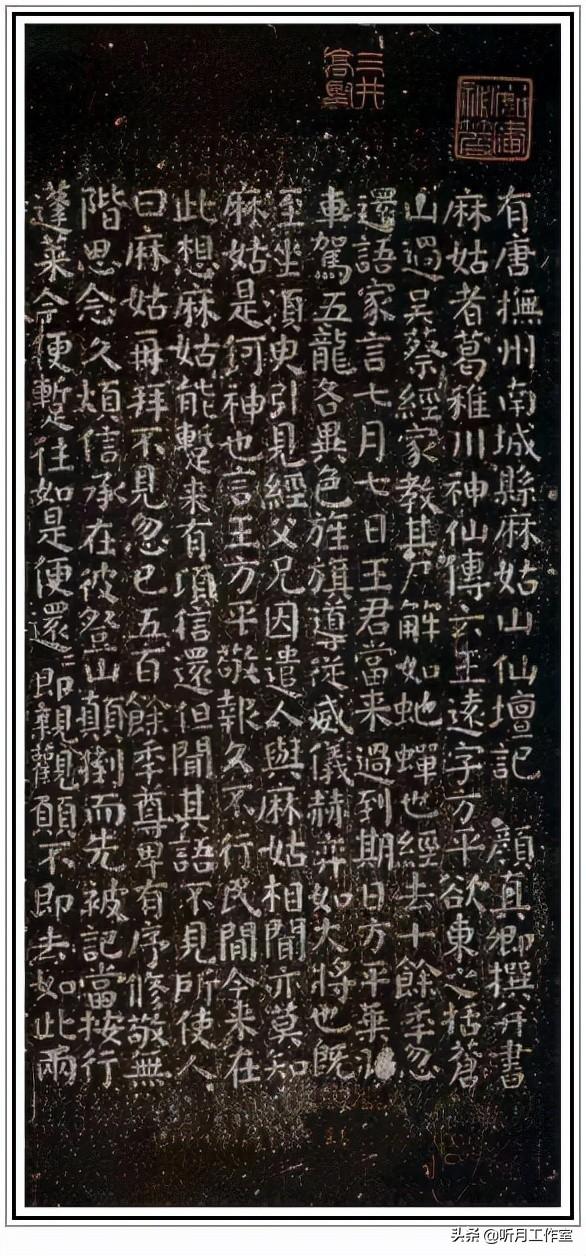 三井高堅
有唐撫州南城縣麻姑山仙壇記 顏真卿撰并書
麻姑者葛稚川神仙傳云王遠字方平欲東之括蒼
山過吳蔡經家教其尸解如虵蟬也經去十餘季忽
還語家言七月七日王君當来過到期日方平乗羽
車駕五龍各異色旌旗導從威儀赫弈如大將也既
至坐須臾引見經父兄因遣人與麻姑相聞亦莫知
麻姑是何神也言王方平敬報久不行民間今来在
此想麻姑能蹔来有頃信還但聞其語不見所使人
曰麻姑再拜不見忽已五百餘季尊卑有序修敬無
階思念久煩信承在彼登山顛倒而先被記當按行
蓬萊今便蹔往如是便還即親觀願不即去如此兩
头条 @听月工作室